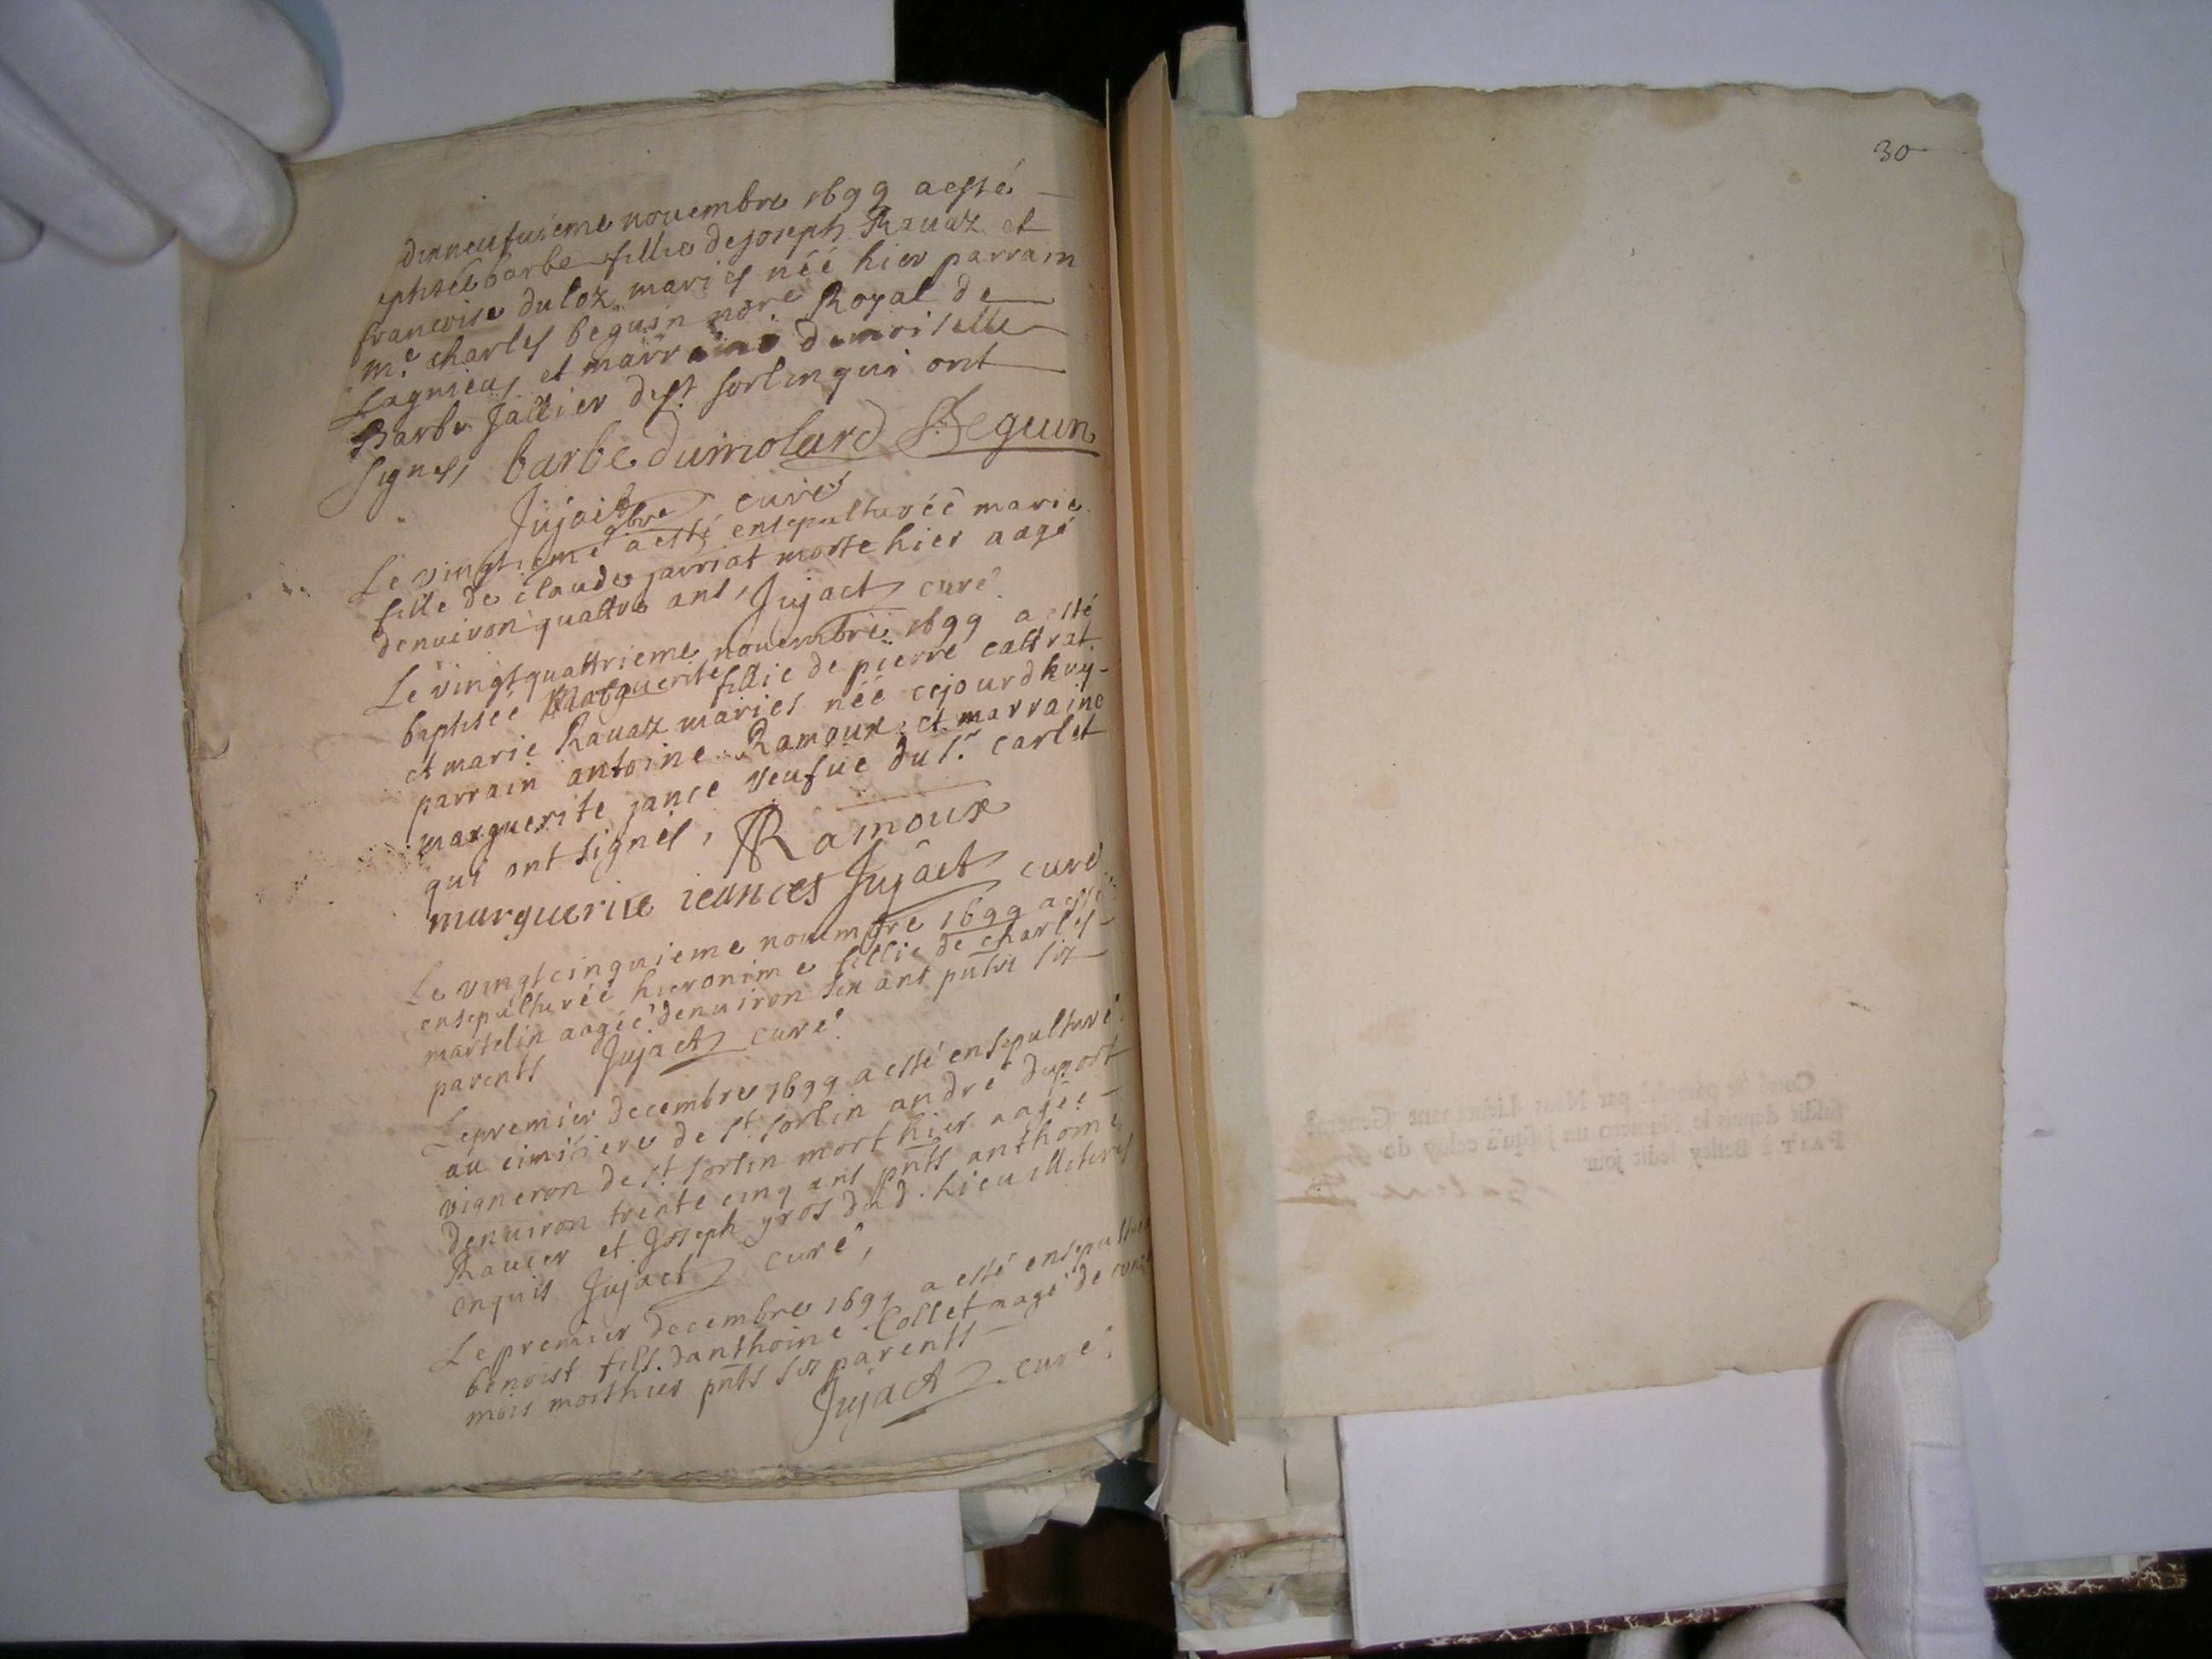 dixneufuieme nouembre 1699 a esté
ptisée barbe fillie de joseph Rauaz et
francoise duloz mariés néé hier parrain
me. charles beguin nore Royal de
Lagnieu, et marraine demoiselle
Barbe Jallier de st. sorlin qui ont
signés, barbe dumolard Beguin
Jujact curé
Le vingtieme 9bre a esté ensepulturéé marie
fille de claude jarriat morte hier aagé
denuiron quattre ans, Jujact curé.
Le vingtquattrieme nouembre 1699 a esté
baptisée Marguerite fillie de pierre
et marie Rauaz mariés néé cejourdhuy
parrain antoine Ramoux et marraine
marguerite jance veufue du sr. carlet
qui ont signés, Ramoux
marguerite iances Jujact curé
Le vingtcinquieme nouembre 1699 a esté
ensepulturéé hieronime fillie de charles
martelin aagéé denuiron six ans pnts ses
parents Jujact curé.
Le premier decembre 1699 a esté ensepulturé
au cimitiere de st. sorlin andré duport
vigneron de st. sorlin mort hier aagée
denuiron trente cinq ans pnts anthoine
Rauier et Joseph gros dud. lieu illiteres
enquis Jujact curé,
Le premier decembre 1699 a esté ensepulturé
benoist fils danthoine Collet aagé de
mois mort hier pnts ses parents
Jujact curé.
30
Cotté & paraphé par Nous Lieutenant General
suscité depuis le Numero un jusqu'à celuy de
FAIT à Belley ledit jour